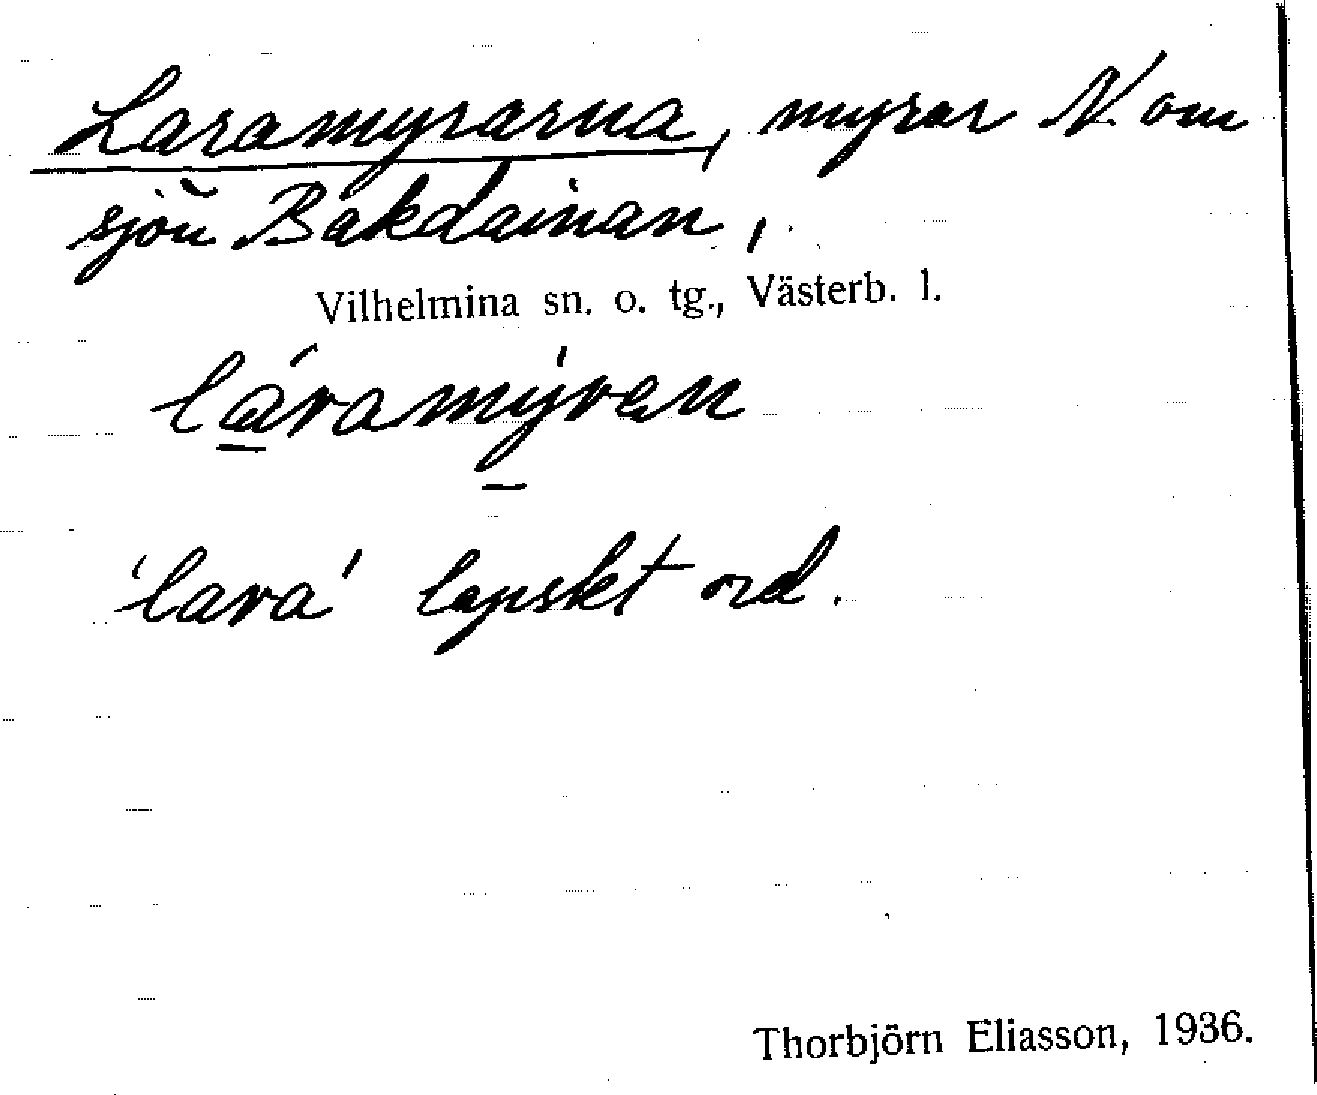 Laramyrarna, myrar N. om
sjön Bakdainan,
Vilhelmina sn. o. tg., Västerb. l.
láramýren
'lara' lapskt ord.
Thorbjörn Eliasson, 1936.